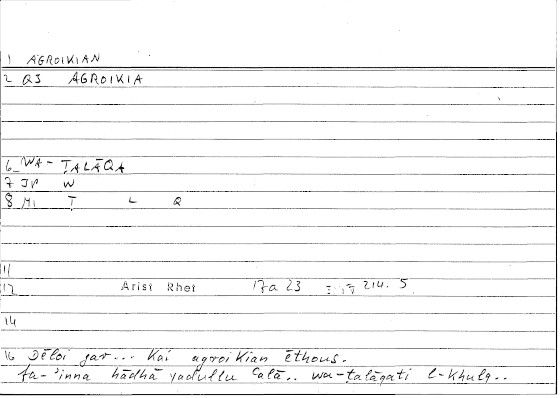 1 AGROIKIAN
2 QS AGROIKIA
6 WA-ṬALĀQA
7 JP W
8 M1 Ṭ L Q
11
12 Arist Rhet 17a23 214.5
14
16 Dēloi gar... kai agroikian ēthous.
fa-'inna hādhā yadullu ʿalā.. wa-ṭalāqati l-khulq..